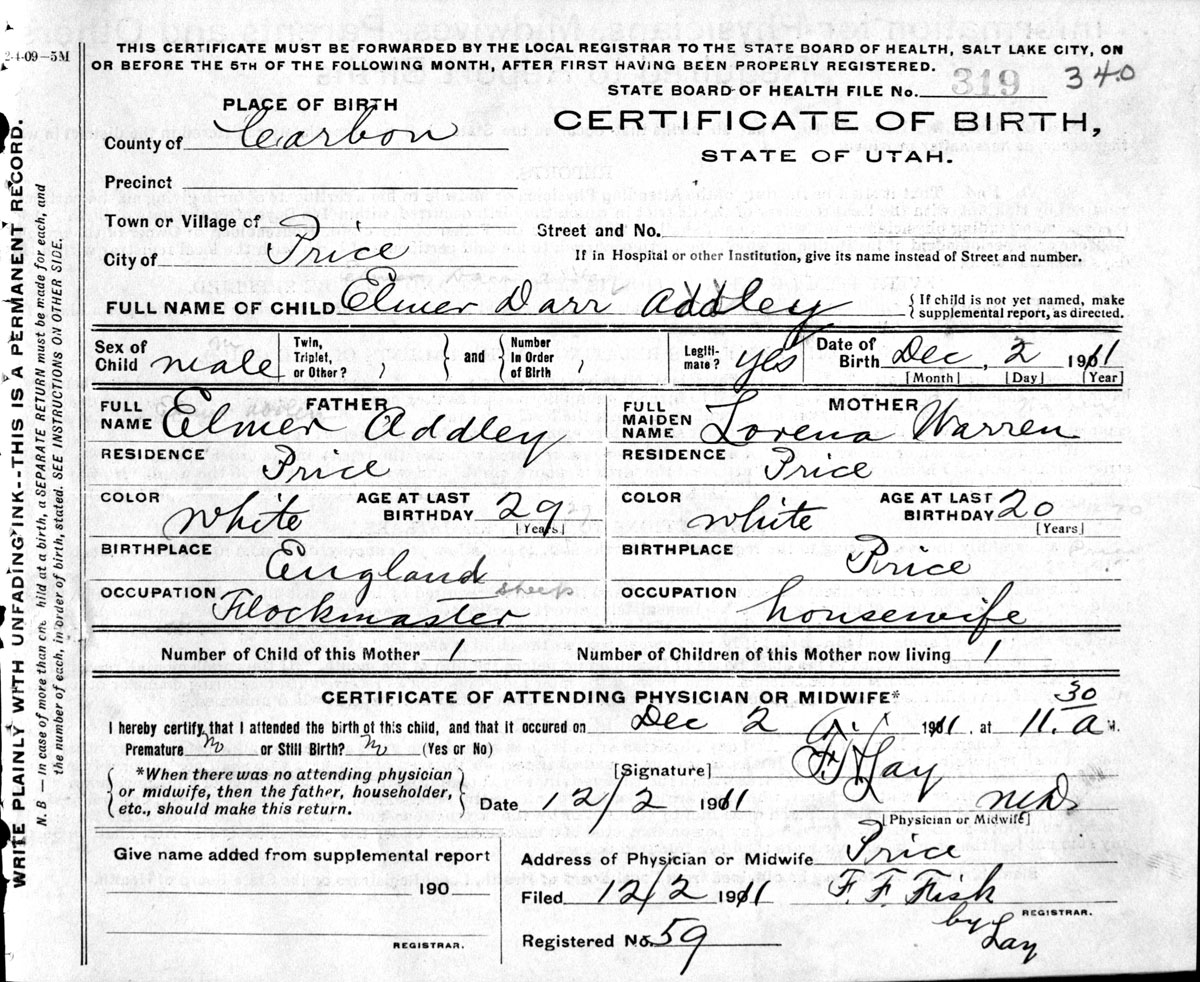 2-4-09—5M
THIS CERTIFICATE MUST BE FORWARDED BY THE LOCAL REGISTRAR TO THE STATE BOARD OF HEALTH, SALT LAKE CITY, ON
OR BEFORE THE 5TH OF THE FOLLOWING MONTH, AFTER FIRST HAVING BEEN PROPERLY REGISTERED.
STATE BOARD OF HEALTH FILE No. 319 340
PLACE OF BIRTH
CERTIFICATE OF BIRTH,
County of Carbon
STATE OF UTAH.
Precinct
Town or Village of
Street and No.
City of Price
If in Hospital or other Institution, give its name instead of Street and number.
FULL NAME OF CHILD Elmer Darr Addley { If child is not yet named, make supplemental report, as directed.
Sex of Child male Twin, Triplet, or Other? } and { Number in Order of Birth Legitimate? yes Date of Birth Dec, 2 1911
[Month] [Day] [Year]
FATHER MOTHER
FULL NAME Elmer Addley FULL MAIDEN NAME Lorena Warren
RESIDENCE Price RESIDENCE Price
COLOR White AGE AT LAST BIRTHDAY 29 [Years] COLOR white AGE AT LAST BIRTHDAY 20 [Years]
BIRTHPLACE England BIRTHPLACE Price
OCCUPATION Flockmaster sheep OCCUPATION housewife
Number of Child of this Mother 1 Number of Children of this Mother now living 1
CERTIFICATE OF ATTENDING PHYSICIAN OR MIDWIFE*
I hereby certify that I attended the birth of this child, and that it occured on Dec 2 1911, at 11.30 a M.
Premature No or Still Birth? No (Yes or No)
*When there was no attending physician
or midwife, then the father, householder,
etc., should make this return.
[Signature]
Date 12/2 1911 M.D.
[Physician or Midwife]
Give name added from supplemental report
190
REGISTRAR.
Address of Physician or Midwife Price
Filed 12/2 1911 F. F. Fisk
REGISTRAR.
by Lay
Registered No. 59
WRITE PLAINLY WITH UNFADING INK--THIS IS A PERMANENT RECORD.
N. B —In case of more than one child at a birth, a SEPARATE RETURN must be made for each, and
the number of each, in order of birth, stated. SEE INSTRUCTIONS ON OTHER SIDE.